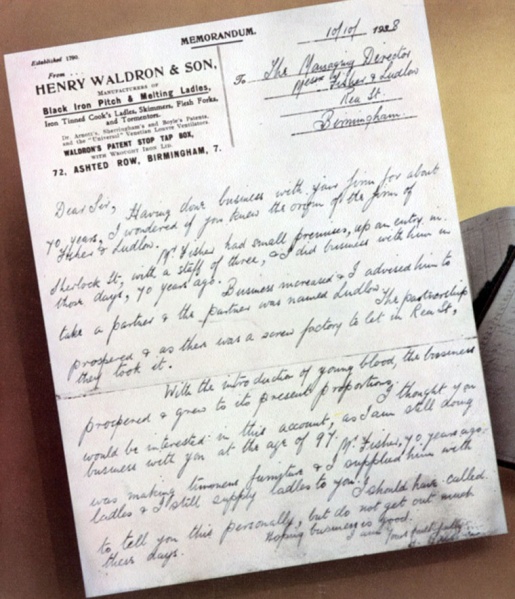 MEMORANDUM.
Established 1790.
10/10/ 1928
From
HENRY WALDRON & SON,
MANUFACTURERS OF
Black Iron Pitch & Melting Ladles,
Iron Tinned Cook's Ladles, Skimmers, Flesh Forks,
and Tormentors.
Dr. Arnott's, Sherringham's and Boyle's Patents,
and the "Universal" Venetian Louvre Ventilators.
WALDRON'S PATENT STOP TAP BOX,
WITH WROUGHT IRON LID.
72, ASHTED ROW, BIRMINGHAM, 7.
To The Managing Director
Messrs Fisher & Ludlow
Rea St.
Birmingham
Dear Sir,
Having done business with your firm for about
70 years, I wondered if you knew the origin of the firm of
Fisher & Ludlow.
Mr Fisher had small premises, up an entry, in
Sherlock St, with a staff of three, & I did business with him in
those days, 70 years ago.
Business increased & I advised him to
take a partner & the partner was named Ludlow.
The partnership
prospered & as there was a screw factory to let in Rea St,
they took it.
With the introduction of young blood, the business
prospered & grew to its present proportions.
I thought you
would be interested in this account, as I am still doing
business with you at the age of 97.
Mr Fisher, 70 years ago,
was making furniture & I supplied him with
ladles & I still supply ladles to you.
I should have called
to tell you this personally, but do not get out much
these days.
Hoping business is good.
I am
Yours faithfully